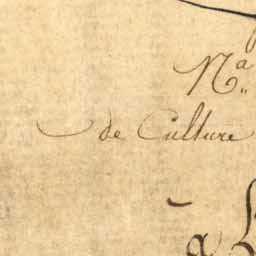 Nª
de Culture
a